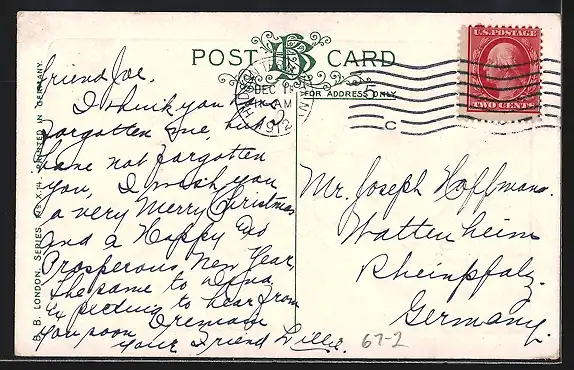 POST CARD
BB
FOR ADDRESS ONLY.
B. B. LONDON, SERIES No. X. 14. PRINTED IN GERMANY.
U.S. POSTAGE
TWO CENTS
DEC
AM
1912
C
friend Joe.
I think you have
forgotten me, but I
have not forgotten
you, I wish you
a very Merry Christmas
and a Happy
Prosperous New Year,
the same to
Expecting to hear from
you soon I remain
your Friend Lillie.
Mr. Joseph Hoffmann.
Wattenheim
Rheinpfalz.
Germany.
67-2